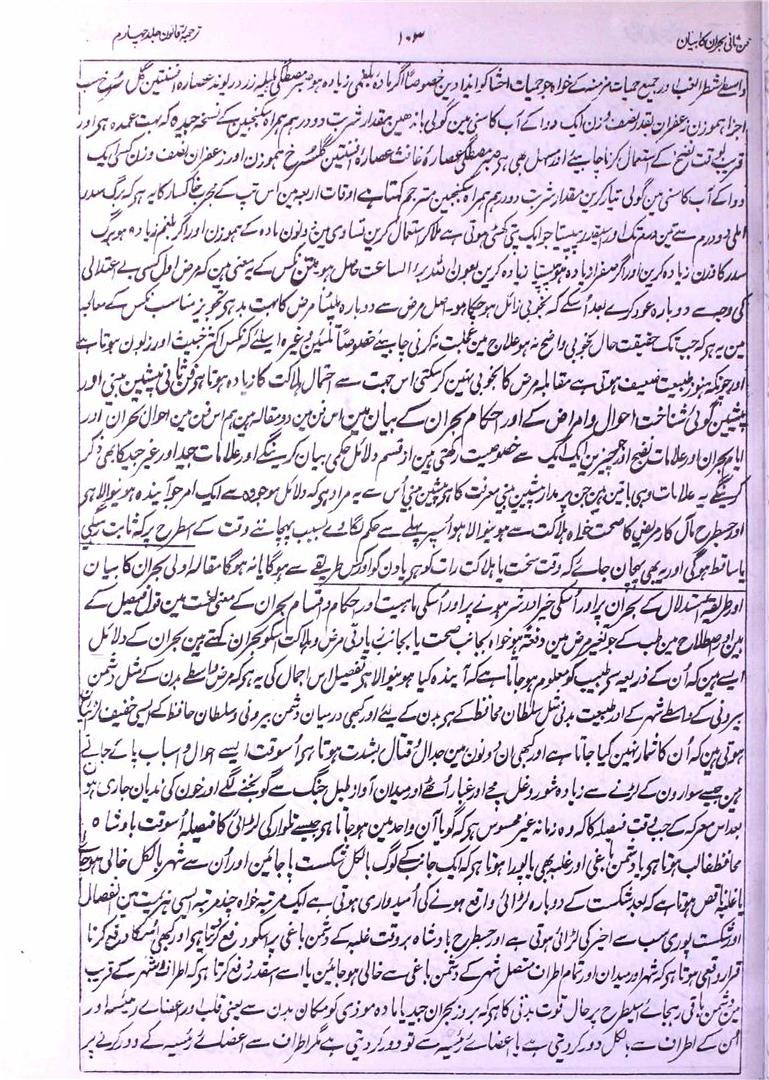 فن ثانی بحران کا بیان ۱۰۳ ترجمہ قانون جلد چہارم
واسطے شطر الغب اور جمیع حمیات مزمنہ کے خواہ وہ حمیات احشا کو ایذا دین خصوصاً اگر مادہ بلغمی زیادہ ہو صبر مصطگی ہلیلہ زرد ریوند عصارہ افسنتین گل سرخ سب
اجزا ہموزن زعفران بقدر نصف وزن ایک دوا کے آب کاسنی مین گولی باندھین مقدار شربت دو درم ہمراہ سکنجبین کے نسخہ جیدہ کہ بہت عمدہ ہی اور
قریب وقت نضج کے استعمال کرنا چاہیے اور مسہل بھی ہی صبر مصطگی عصارۂ غافث عصارۂ افسنتین گلسرخ ہموزن اور زعفران نصف وزن کسی ایک
دوا کے آب کاسنی مین گولی تیار کرین مقدار شربت دو درم ہمراہ سکنجبین مترجم کہتا ہے اوقات اربعہ مین اس تپ کے مجرب خاکسار کا یہ ہے کہ برگ سدر
املی دو درم سے تین درم تک اور اسیقدر پیستا جو ایک پتی کھٹی ہوتی ہے ملا کر استعمال کرین تساوی مین دونون مادہ کے ہموزن اور اگر بلغم زیادہ ہو برگ
سدر کا وزن زیادہ کرین اور اگر صفرا زیادہ ہو پیستا زیادہ کرین بعون اللہ برء الساعت حاصل ہو متن نکس کے یہ معنی ہین کہ مرض اول کسی بے اعتدالی
کی وجہ سے دوبارہ عود کرے بعد اُسکے کہ بخوبی زائل ہو چکا ہو۔ اصل مرض سے دوبارہ پلٹنا مرض کا بہت بد ہی تجویز مناسب نکس کے معالجہ
مین یہ ہے کہ جب تک حقیقت حال بخوبی واضح نہ ہو علاج مین عجلت نہ کرنی چاہیے خصوصاً تلیین وغیرہ اسلیے کہ نکس اکثر خبیث اور زبون ہوتا ہے
اور چونکہ ہنوز طبیعت ضعیف ہوتی ہے مقابلہ مرض کا بخوبی نہین کر سکتی اس جہت سے احتمال ہلاکت کا زیادہ ہوتا ہو فن ثانی پیشین بینی اور
پیشین گوئی شناخت احوال و امراض کے اور احکام بحران کے بیان مین اس فن مین دو مقالہ ہین ہم اس فن مین احوال بحران اور
ایام بحران اور علامات نضج اور جو چیزین ایک ایک سے خصوصیت رکھتی ہین از قسم دلائل حکمی بیان کرینگے اور علامات جید اور غیر جید کا بھی ذکر
کرینگے یہ علامات وہی باتین ہین جن پر مدار پیشین بینی معرفت کا ہو پیشین بینی اُس سے یہ مراد ہی کہ دلائل موجودہ سے ایک امر جو آیندہ ہونیوالا ہی
اور جسطرح مآل کار مریض کا صحت خواہ ہلاکت سے ہونیوالا ہو اُسپر پہلے سے حکم لگاوے بسبب پہچاننے وقت کے اسطرح پر کہ ثابت رہیگی
یا ساقط ہو گی اور یہ بھی پہچان جائے کہ وقت سخت یا ہلاکت رات کو ہی یا دن کو اور کس طریقے سے ہوگا یا نہ ہوگا مقالہ اولی بحران کا بیان
اور طریقہ استدلال کے بحران پر اور اُسکی خیر اور شر ہونے پر اور اُسکی ماہیت اور احکام و اقسام بحران کے معنی لغت مین قول فیصل کے
ہین اور اصطلاح مین طب کے جو تغیر مرض مین دفعۃً ہو خواہ بجانب صحت یا بجانب زیادتی مرض و ہلاکت اُسکو بحران کہتے ہین بحران کے دلائل
ایسے ہین کہ اُن کے ذریعہ سے طبیب کو معلوم ہو جاتا ہے کہ آیندہ کیا ہونیوالا ہی تفصیل اس اجمال کی یہ ہو کہ مرض واسطے بدن کے مثل دشمن
بیرونی کے واسطے شہر کے اور طبیعت بدنی مثل سلطان محافظ کے ہی بدن کے لیے اور کبھی درمیان دشمن بیرونی و سلطان حافظ کے ایسی خفیف
ہوتی ہین کہ اُن کا شمار نہین کیا جاتا ہے اور کبھی ان دونون مین جدال و قتال بشدت ہوتا ہی اُسوقت ایسے احوال و اسباب پائے جاتے
ہین جیسے سوارون کے لڑنے سے زیادہ شور و غل مچے اور غبار اُٹھے اور میدان آواز طبل جنگ سے گونجنے لگے اور خون کی ندیان جاری ہون
بعد اس معرکہ کے جب وقت فیصلہ کا کہ وہ زمانہ غیر محسوس ہی کہ گویا آن واحد مین ہو جاتا ہی جیسے تلوار کی لڑائی کا فیصلہ اُسوقت بادشاہ
محافظ غالب ہوتا ہی یا دشمن باغی اور غلبہ بھی یا پورا ہوتا ہی کہ ایک جانب کے لوگ بالکل شکست پا جائین اور اُن سے شہر بالکل خالی ہو جائے
یا غلبہ ناقص ہوتا ہے کہ بعد شکست کے دوبارہ لڑائی واقع ہونے کی اُمیدواری ہوتی ہے ایک مرتبہ خواہ چند مرتبہ ایسی ہزیمت مین انفصال
اور شکست پوری سب سے اخیر کی لڑائی ہوتی ہے اور جسطرح بادشاہ بروقت غلبہ کے دشمن باغی پر اسکو دفع کرتا ہی اور کبھی اُسکا دفع کرنا
قرار واقعی ہوتا ہی کہ شہر اور میدان اور تمام اطراف متصل شہر کے دشمن باغی سے خالی ہو جائین یا اسے اسقدر دفع کرتا ہی کہ اطراف شہر کے قریب
مین دشمن باقی رہجائے اسیطرح پر حال قوت بدنی کا ہی کہ بروز بحران جید یا مادہ موذی کو مکان بدن سے یعنی قلب اور اعضاے رئیسہ اور
اُن کے اطراف سے بالکل دور کر دیتی ہے یا اعضاے رئیسہ سے تو دور کر دیتی ہے مگر اطراف سے اعضاے رئیسہ کے دور کرنے پر